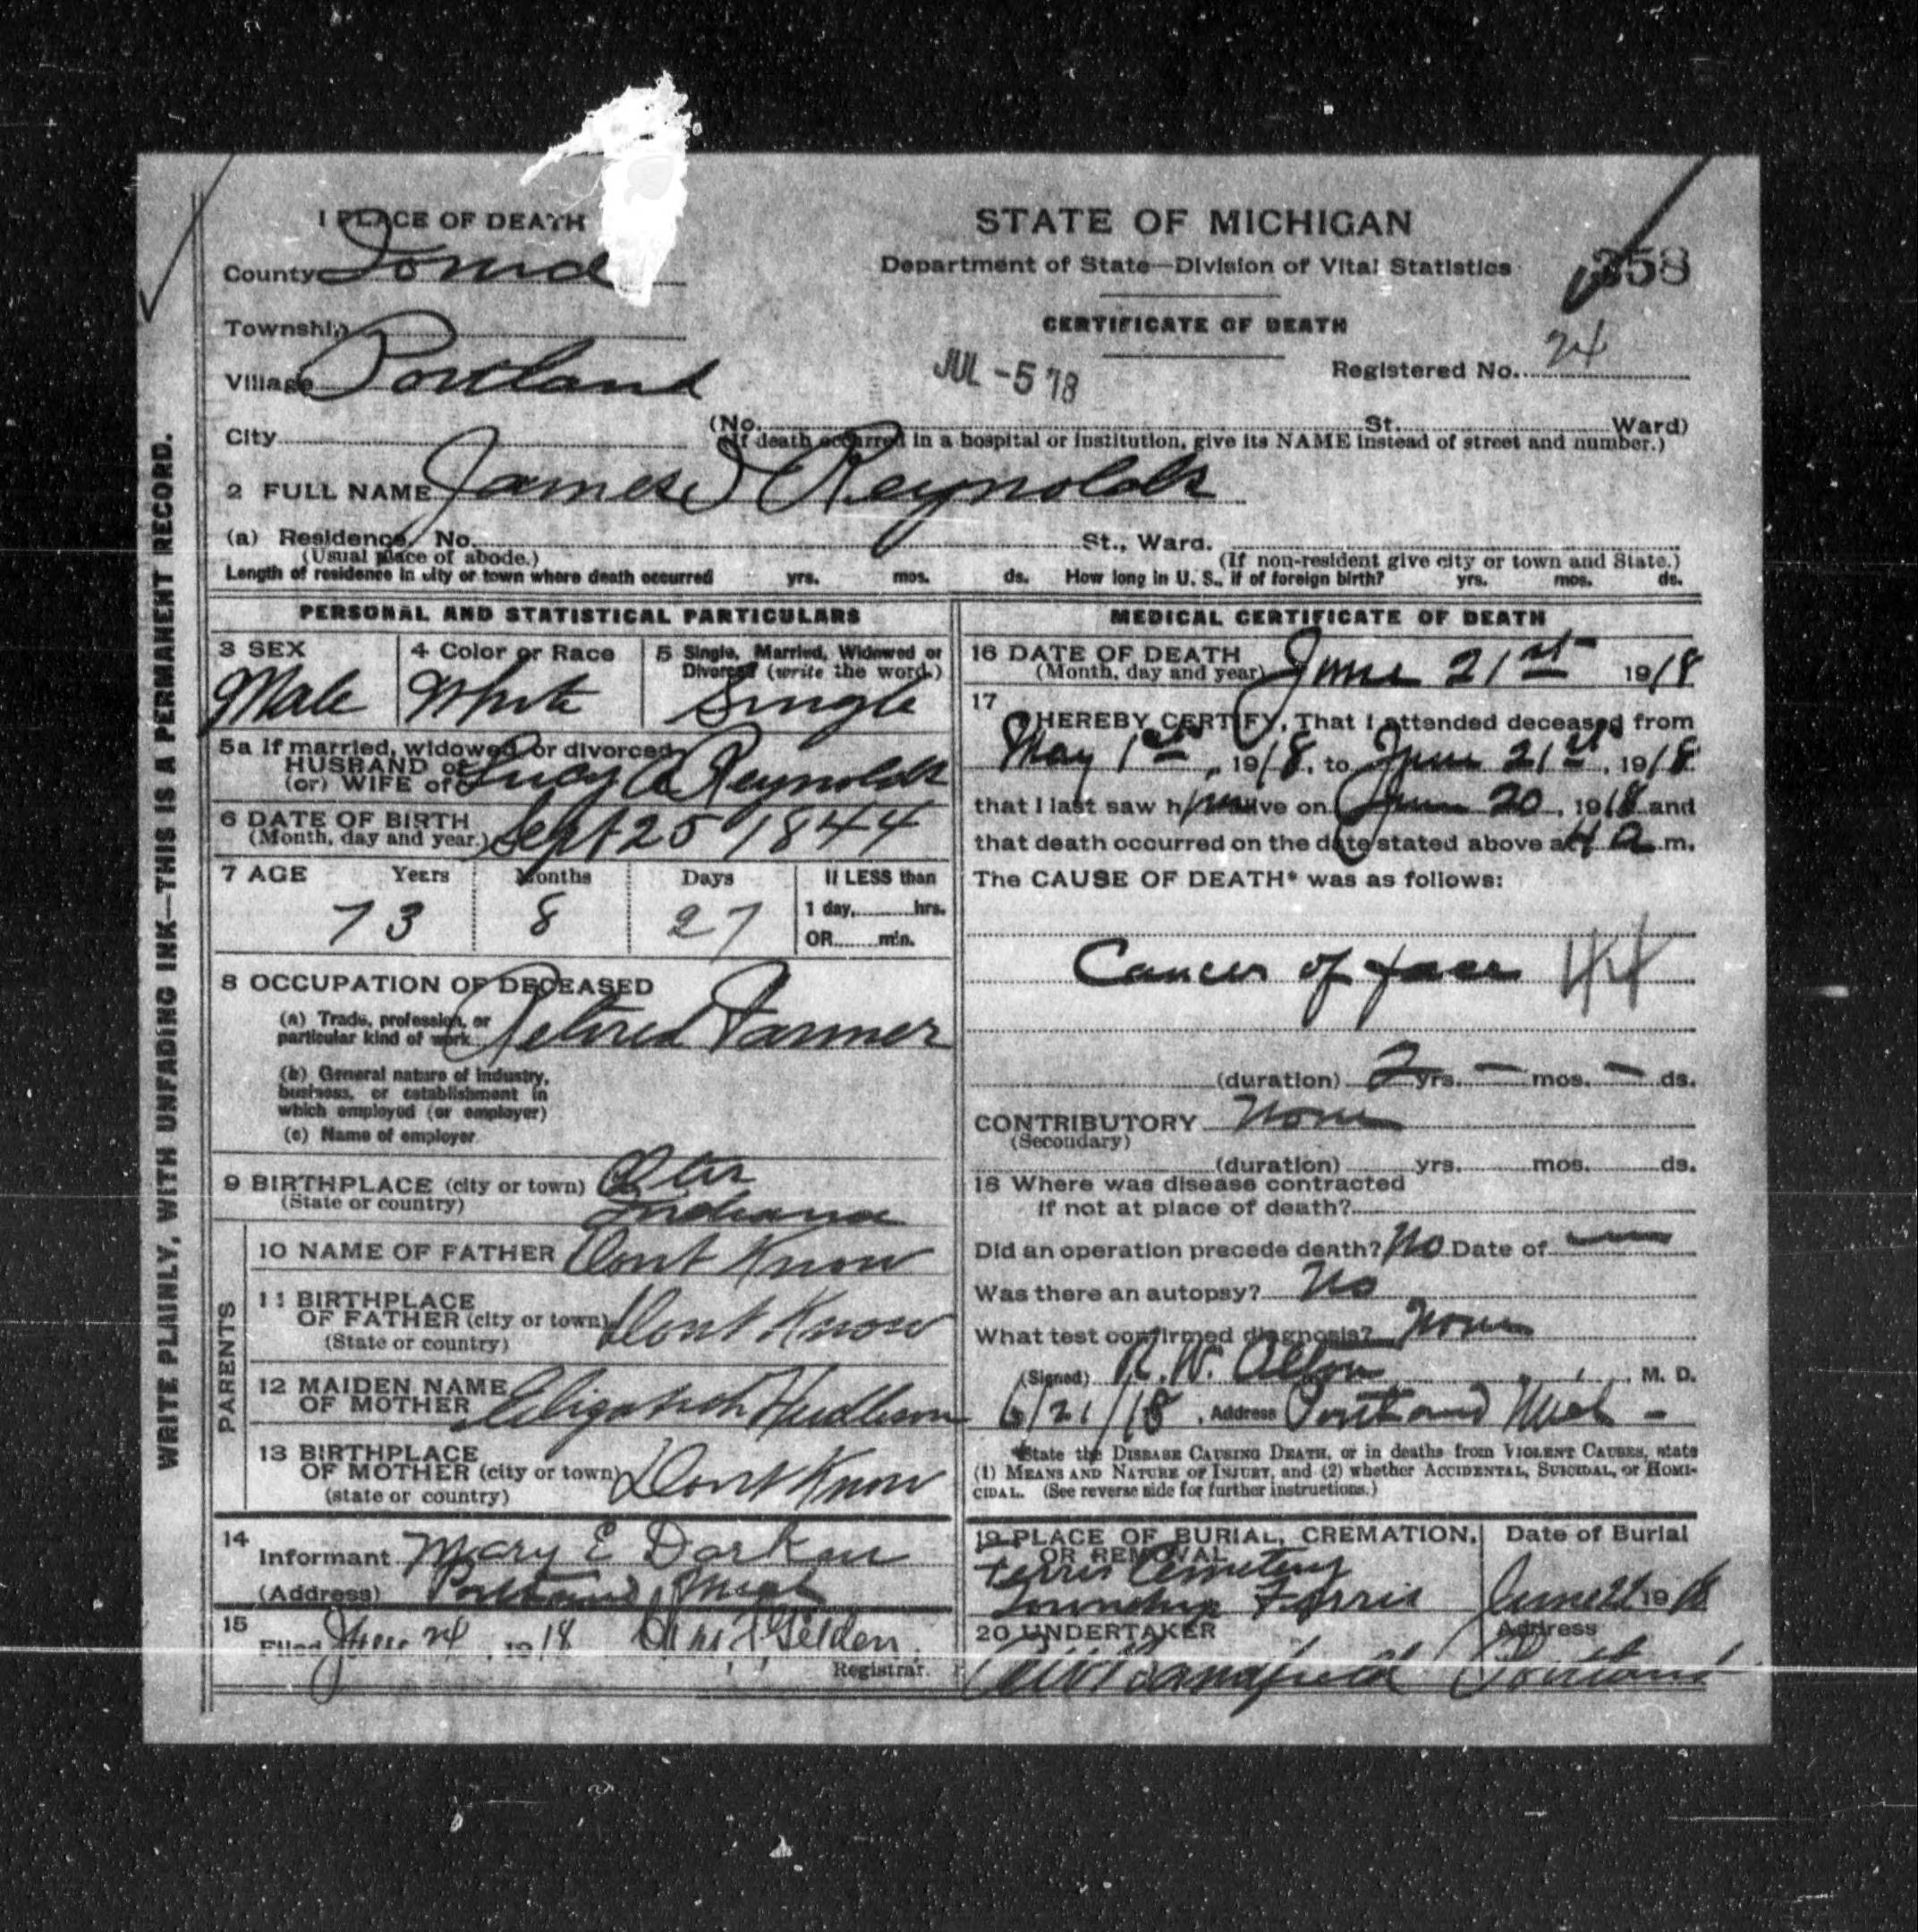 1 PLACE OF DEATH
County Ionia
Township
Village Portland
City
STATE OF MICHIGAN
Department of State—Division of Vital Statistics
358
CERTIFICATE OF DEATH
JUL -5 '18
Registered No. 24
(No. St. Ward)
(If death occurred in a hospital or institution, give its NAME instead of street and number.)
2 FULL NAME James I Reynolds
(a) Residence, No. St., Ward.
(Usual place of abode.) (If non-resident give city or town and State.)
Length of residence in city or town where death occurred yrs. mos. ds. How long in U. S., if of foreign birth? yrs. mos. ds.
WRITE PLAINLY, WITH UNFADING INK—THIS IS A PERMANENT RECORD.
PERSONAL AND STATISTICAL PARTICULARS
3 SEX
Male
4 Color or Race
White
5 Single, Married, Widowed or
Divorced (write the word.)
Single
5a If married, widowed, or divorced
HUSBAND of
(or) WIFE of Lucy A Reynolds
6 DATE OF BIRTH
(Month, day and year.) Sept 25 1844
7 AGE Years Months Days If LESS than
73 8 27 1 day, hrs.
OR min.
8 OCCUPATION OF DECEASED
(a) Trade, profession, or
particular kind of work Retired Farmer
(b) General nature of industry,
business, or establishment in
which employed (or employer)
(c) Name of employer
9 BIRTHPLACE (city or town)
(State or country) Indiana
PARENTS
10 NAME OF FATHER Dont Know
11 BIRTHPLACE
OF FATHER (city or town) Dont Know
(State or country)
12 MAIDEN NAME
OF MOTHER Elizabeth
13 BIRTHPLACE
OF MOTHER (city or town) Dont Know
(state or country)
14
Informant Mary E
(Address) Portland, Mich
15
Filed June 24, 1918
Registrar.
MEDICAL CERTIFICATE OF DEATH
16 DATE OF DEATH
(Month, day and year) June 21st 1918
17
I HEREBY CERTIFY, That I attended deceased from
May 1st, 1918, to June 21st, 1918
that I last saw him alive on June 20, 1918 and
that death occurred on the date stated above at 4 a m.
The CAUSE OF DEATH* was as follows:
Cancer of face 44
(duration) 2 yrs. — mos. — ds.
CONTRIBUTORY None
(Secondary)
(duration) yrs. mos. ds.
18 Where was disease contracted
if not at place of death?
Did an operation precede death? No Date of —
Was there an autopsy? No
What test confirmed diagnosis? None
(Signed) R. W. Alton, M. D.
6/21/18, Address Portland Mich -
*State the DISEASE CAUSING DEATH, or in deaths from VIOLENT CAUSES, state
(1) MEANS AND NATURE OF INJURY, and (2) whether ACCIDENTAL, SUICIDAL, or HOMI-
CIDAL. (See reverse side for further instructions.)
19 PLACE OF BURIAL, CREMATION,
OR REMOVAL
Ferris Cemetery
Township Ferris
Date of Burial
June 1918
20 UNDERTAKER
Address
Portland